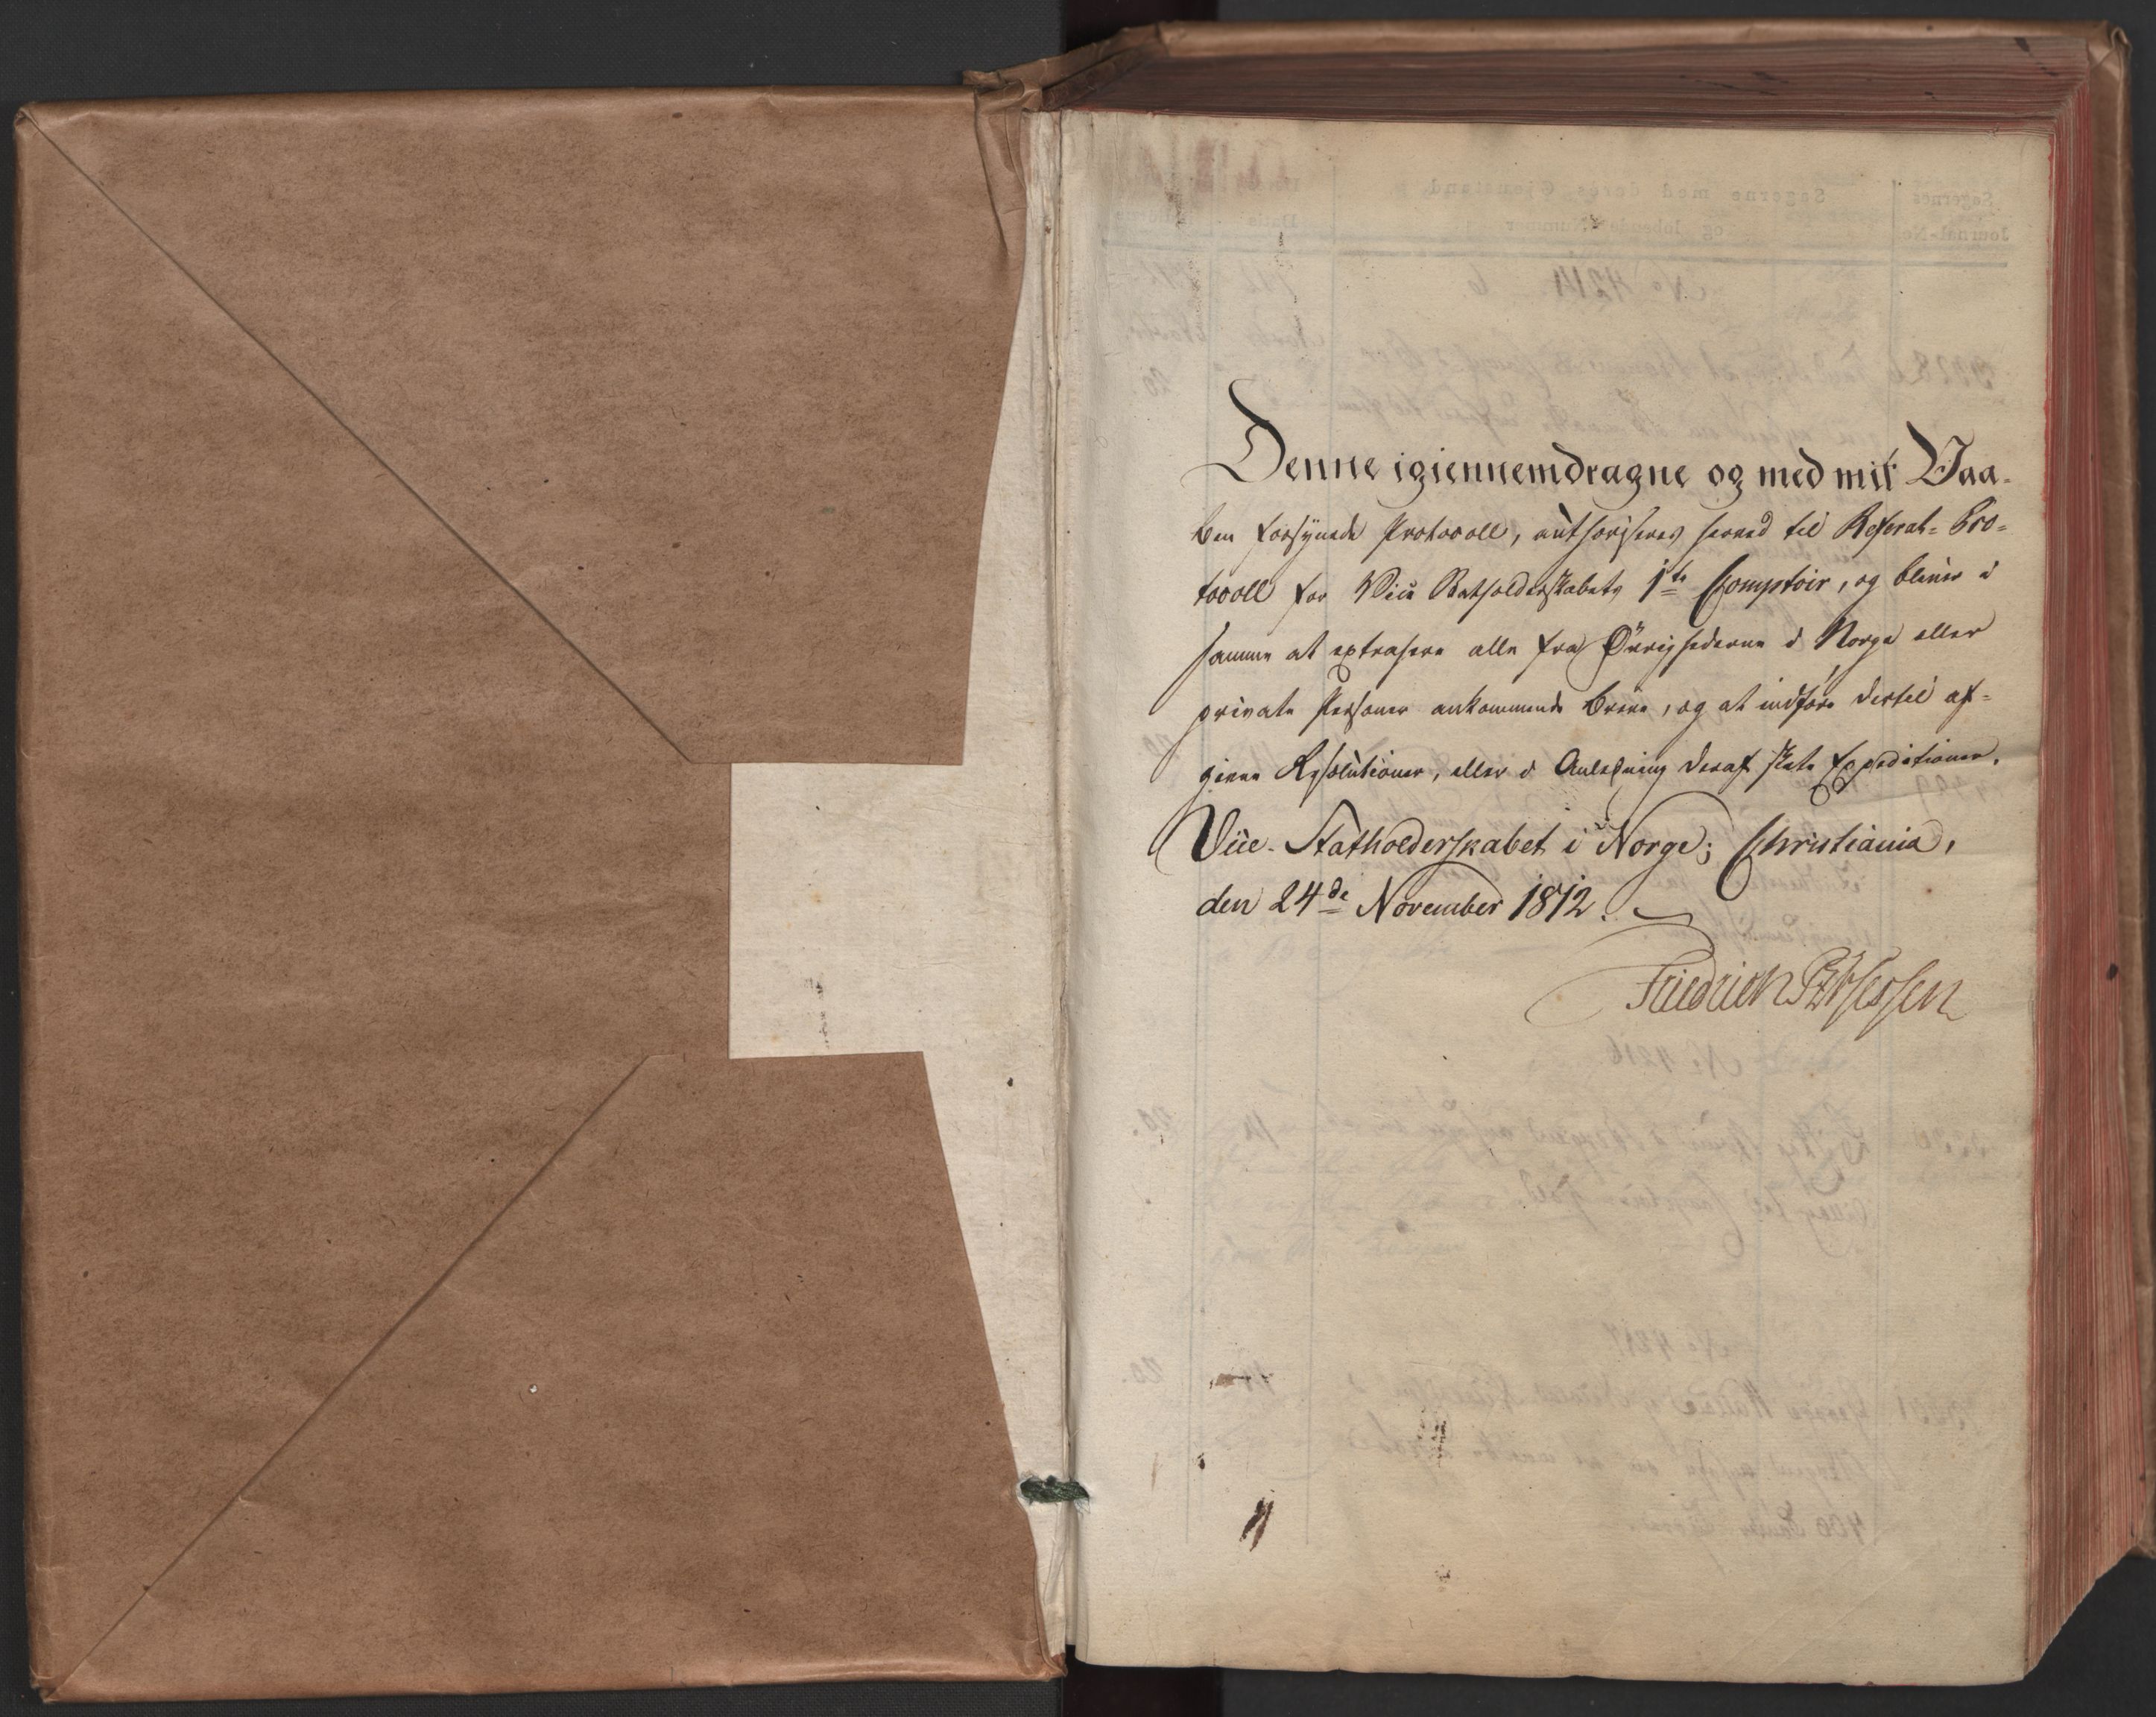 Denne igiennemdragne og med mit Vaa-
ben forsÿnede Protocoll, authoriseres herved til Referat-Pro-
tocoll for Vice Statholderskabets 1te Comptoir, og bliver i
samme at extrahere alle fra Øvrighederne i Norge eller
private Personer ankommende Breve, og at indføre dertil af-
givne Resolutioner, eller i Anledning deraf skete Expeditioner.
Viice-Statholderskabet i Norge; Christiania,
den 24de November 1812.
Friedrich PzHessen